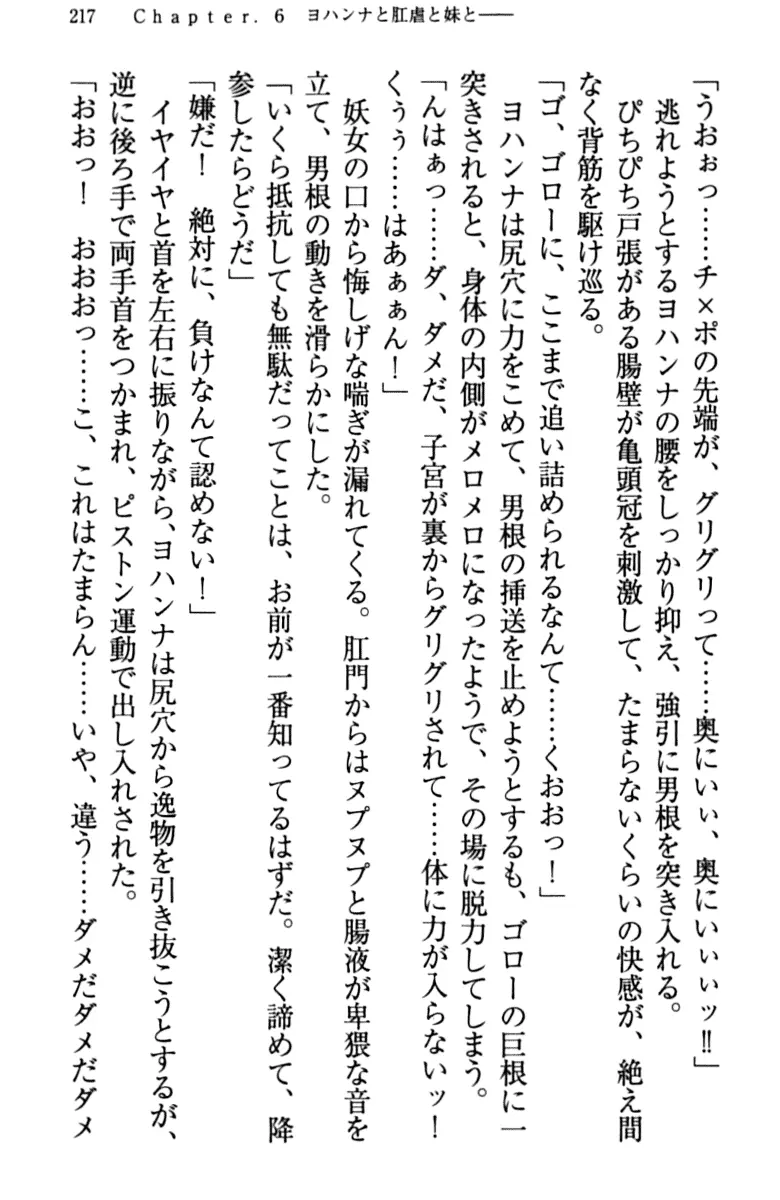 217　Chapter. 6　ヨハンナと肛虐と妹と――
「うおぉっ……チ×ポの先端が、グリグリって……奥にいぃ、奥にいぃぃッ!!」
　逃れようとするヨハンナの腰をしっかり抑え、強引に男根を突き入れる。
　ぴちぴち戸張がある腸壁が亀頭冠を刺激して、たまらないくらいの快感が、絶え間
なく背筋を駆け巡る。
「ゴ、ゴローに、ここまで追い詰められるなんて……くおおっ！」
　ヨハンナは尻穴に力をこめて、男根の挿送を止めようとするも、ゴローの巨根に一
突きされると、身体の内側がメロメロになったようで、その場に脱力してしまう。
「んはぁっ……ダ、ダメだ、子宮が裏からグリグリされて……体に力が入らないッ！
くぅぅ……はあぁぁん！」
　妖女の口から悔しげな喘ぎが漏れてくる。肛門からはヌプヌプと腸液が卑猥な音を
立て、男根の動きを滑らかにした。
「いくら抵抗しても無駄だってことは、お前が一番知ってるはずだ。潔く諦めて、降
参したらどうだ」
「嫌だ！　絶対に、負けなんて認めない！」
　イヤイヤと首を左右に振りながら、ヨハンナは尻穴から逸物を引き抜こうとするが、
逆に後ろ手で両手首をつかまれ、ピストン運動で出し入れされた。
「おおっ！　おおおっ……こ、これはたまらん……いや、違う……ダメだダメだダメ